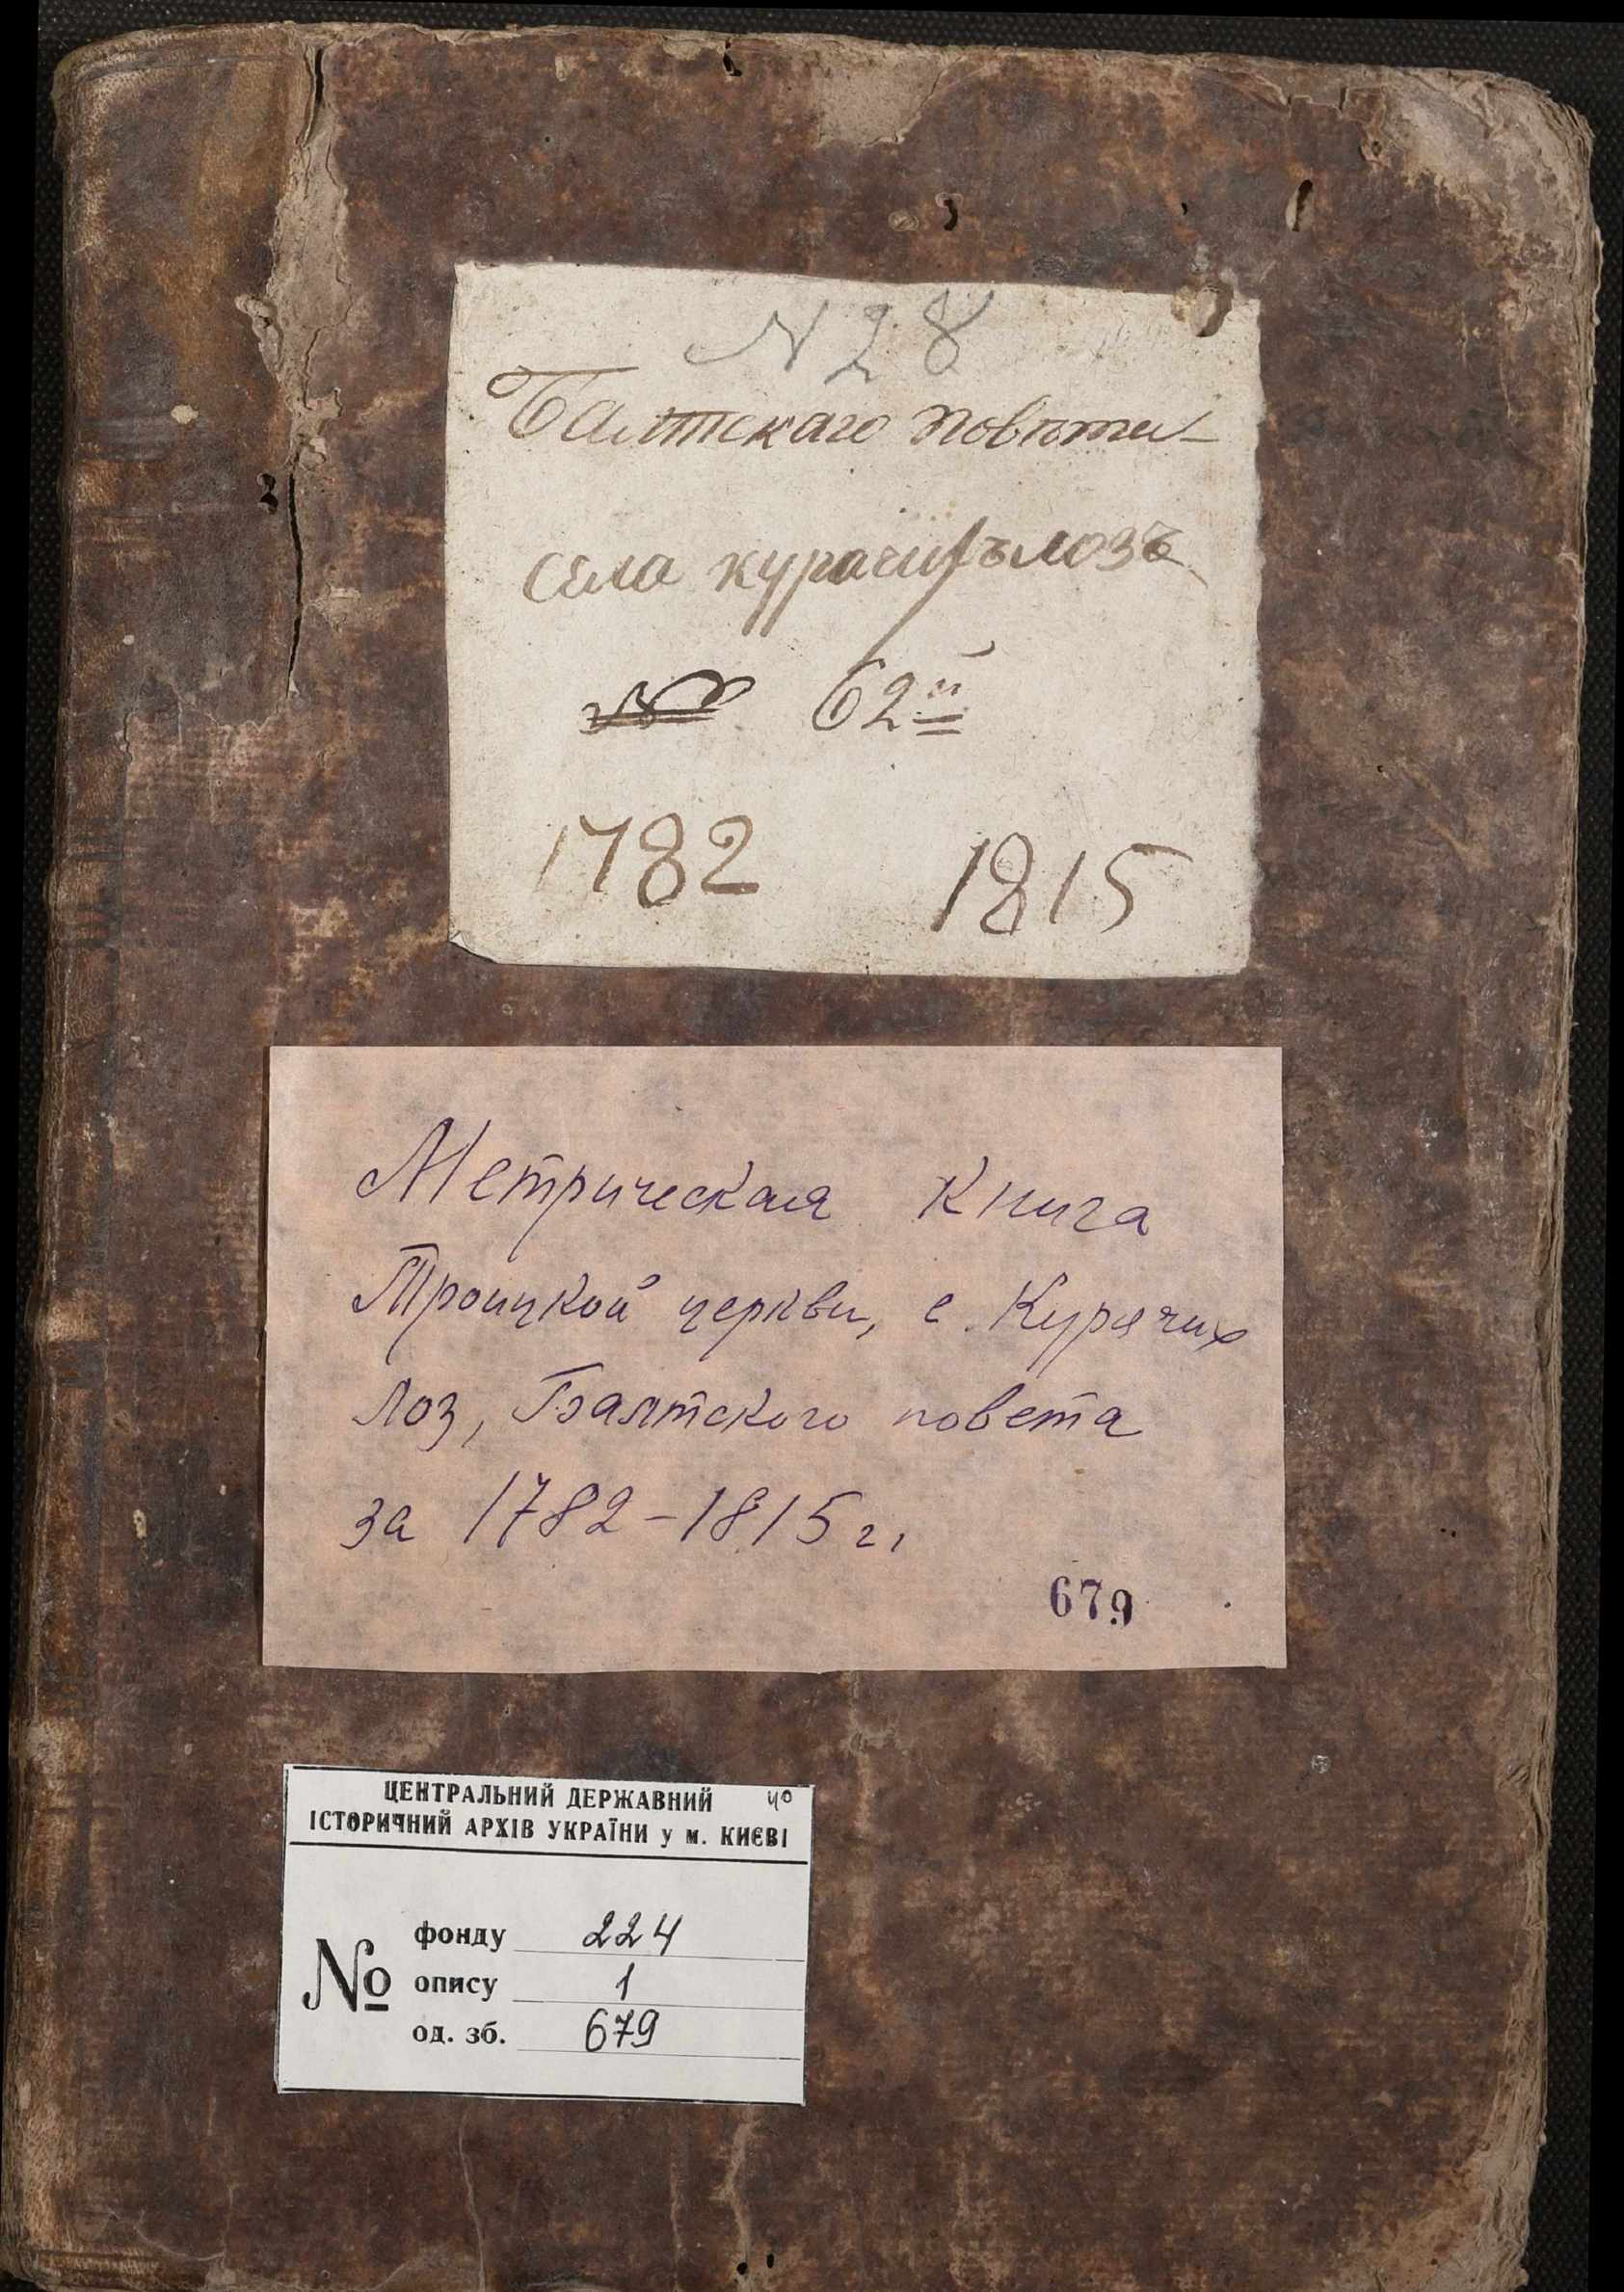 N 28
Балтскаго повѣта
села курачихъ лозъ
№ 62й
1782 1815
Метрическая книга
Троицкой церкви, с. Курячих
Лоз, Балтского повета
за 1782-1815 г.
679
ЦЕНТРАЛЬНИЙ ДЕРЖАВНИЙ 40
ІСТОРИЧНИЙ АРХІВ УКРАЇНИ у м. КИЄВІ
№ фонду 224
опису 1
од. зб. 679